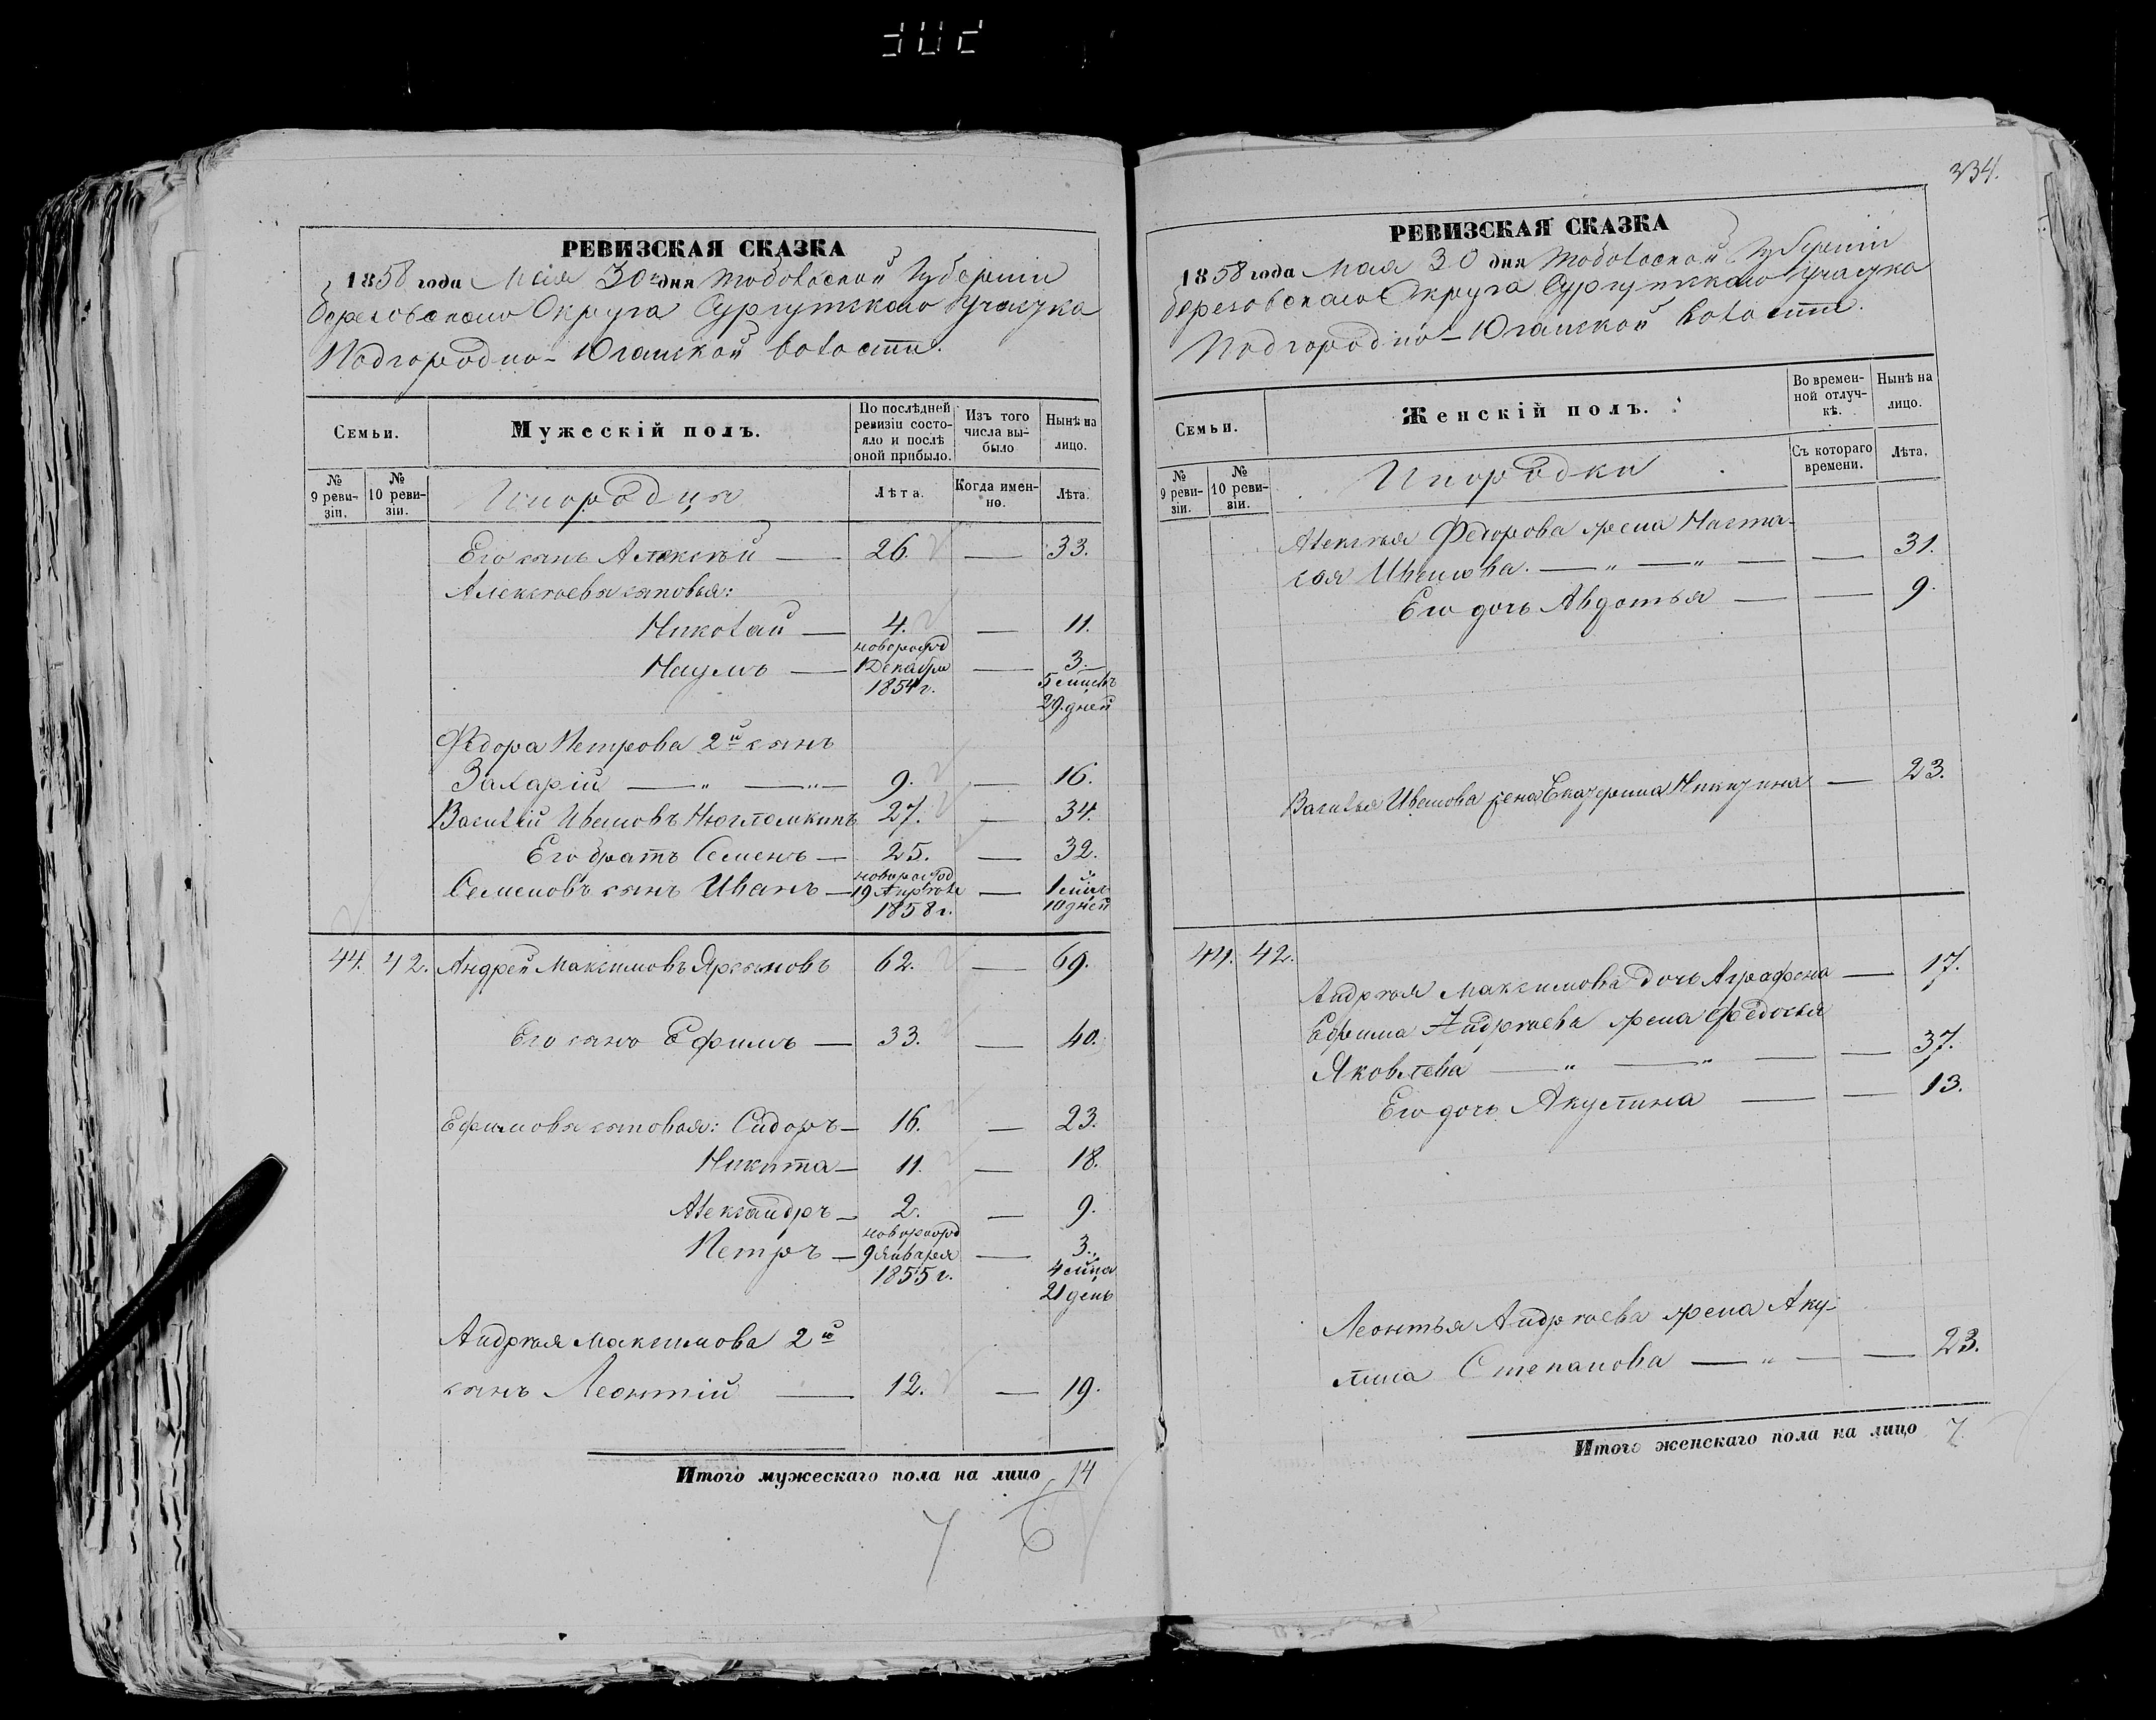 РЕВИЗСКАЯ СКАЗКА
1858 года Мая 30 дня Тобольской Губерніи
Березовскаго Округа Сургутскаго Участка
Подгородно-Юганской волости.
Семьи.
Мужескій полъ.
По послѣдней ревизіи состояло и послѣ оной прибыло.
Изъ того числа выбыло
Нынѣ на лицо.
№ 9 ревизіи.
№ 10 ревизіи.
Инородцы
Лѣта.
Когда именно.
Лѣта.
Его сынъ Алексѣй — 26. — 33.
Алексѣевы сыновья:
Николай — 4. — 11.
новорожд
Наумъ — 1 Декабря — 3.
1854 г. 5 мцовъ
29. дней
Федора Петрова 2й сынъ
Захарій — „ — „ — 9. — 16.
Василій Ивановъ 27. — 34.
Его братъ Семенъ — 25. — 32.
новорожд
Семеновъ сынъ Иванъ — 19 Апрѣля — 1 мцъ
1858 г. 10 дней
44. 42. Андрей Максимовъ Ярсомовъ 62. — 69.
Его сынъ Ефимъ — 33. — 40.
Ефимовы сыновья: Сидоръ — 16. — 23.
Никита — 11. — 18.
Александръ — 2. — 9.
новорожд
Петръ — 9 Января — 3.
1855 г. 4 мца
21 день
Андрѣя Максимова 2й
сынъ Леонтій — 12. — 19.
Итого мужескаго пола на лицо 14
7 6
334.
РЕВИЗСКАЯ СКАЗКА
1858 года Мая 30 дня Тобольской Губерніи
Березовскаго Округа Сургутскаго Участка
Подгородно-Юганской волости.
Семьи.
Женскій полъ.
Во временной отлучкѣ.
Нынѣ на лицо.
№ 9 ревизіи.
№ 10 ревизіи.
Инородки
Съ котораго времени.
Лѣта.
Алексѣя Федорова жена Наста-
сья Иванова. — „ — „ — — 31.
Его дочь Авдотья — — 9.
Василья Иванова жена Екатерина Никитина — 23.
44. 42.
Андрѣя Максимова дочь Аграфена — 17.
Ефима Андрѣева жена Федосья
Яковлева — „ — „ — — 37.
Его дочь Акулина — — 13.
Леонтья Андрѣева жена Аку-
лина Степанова — „ — — 23.
Итого женскаго пола на лицо 7.